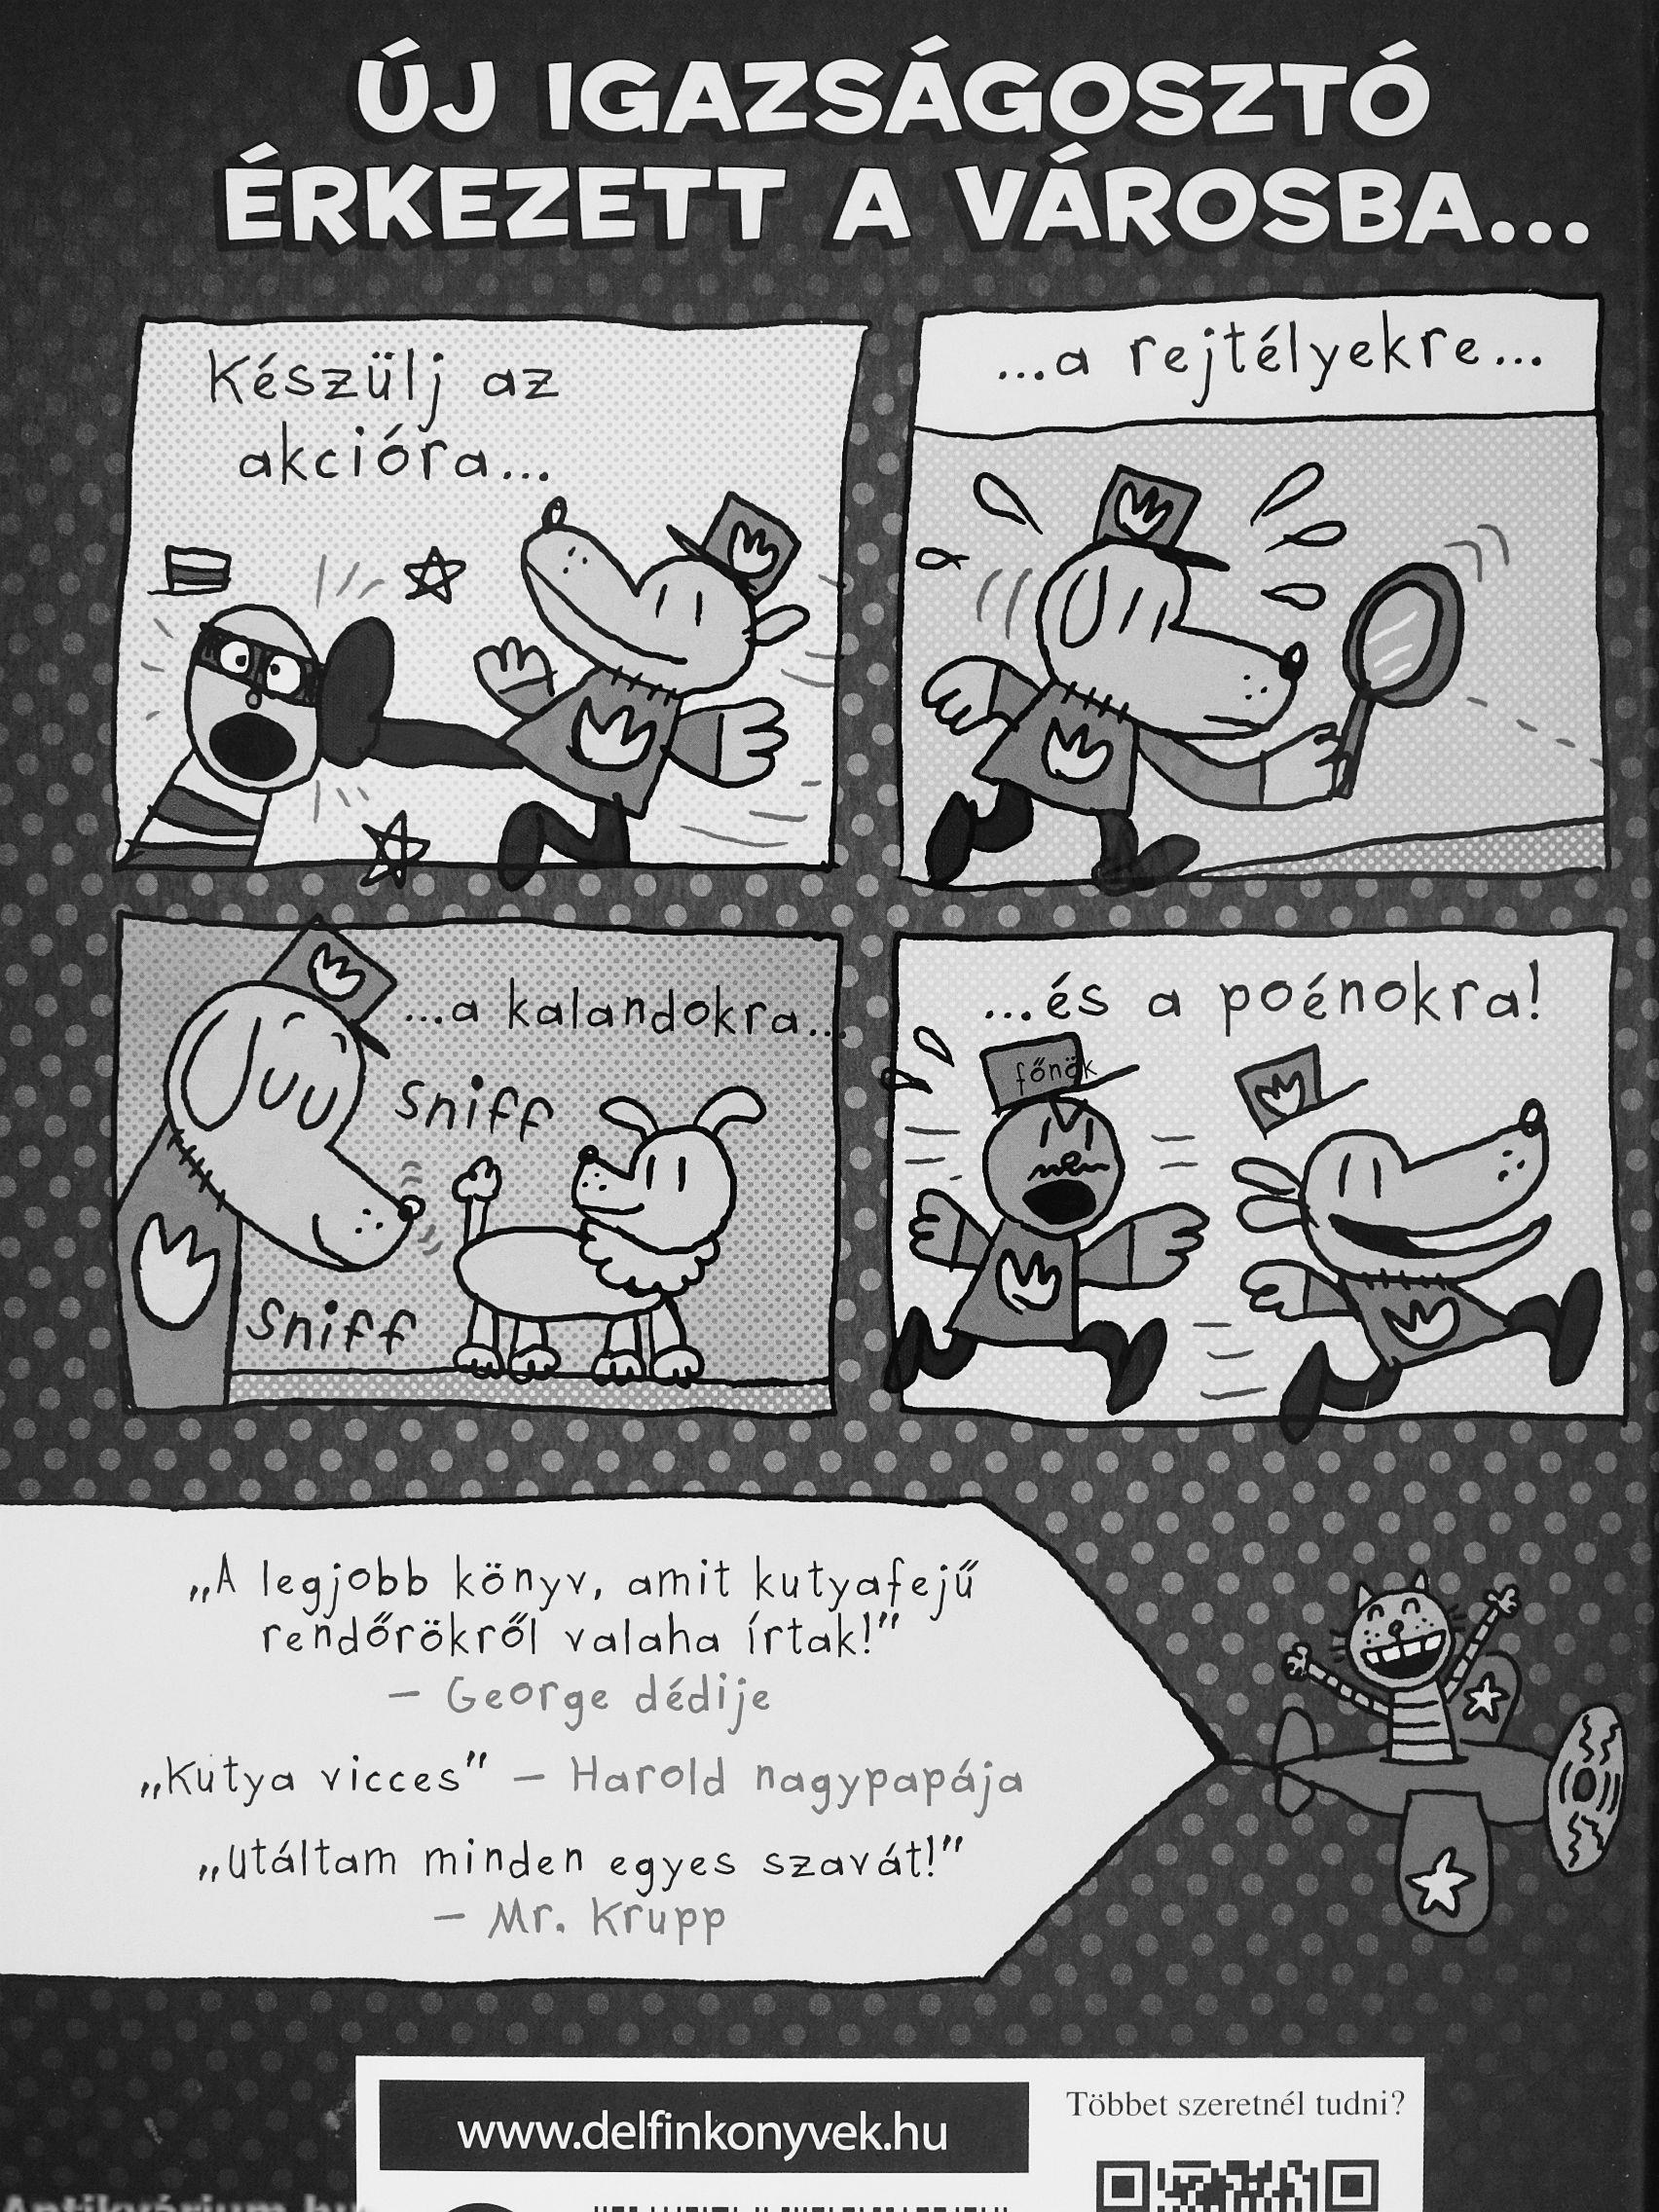 ÚJ IGAZSÁGOSZTÓ
ÉRKEZETT A VÁROSBA...
Készülj az
akcióra...
...a rejtélyekre...
...a kalandokra...
sniff
sniff
...és a poénokra!
főnök
„A legjobb könyv, amit kutyafejű
rendőrökről valaha írtak!”
– George dédije
„Kutya vicces” – Harold nagypapája
„utáltam minden egyes szavát!”
– Mr. Krupp
www.delfinkonyvek.hu
Többet szeretnél tudni?
Antikvárium.hu